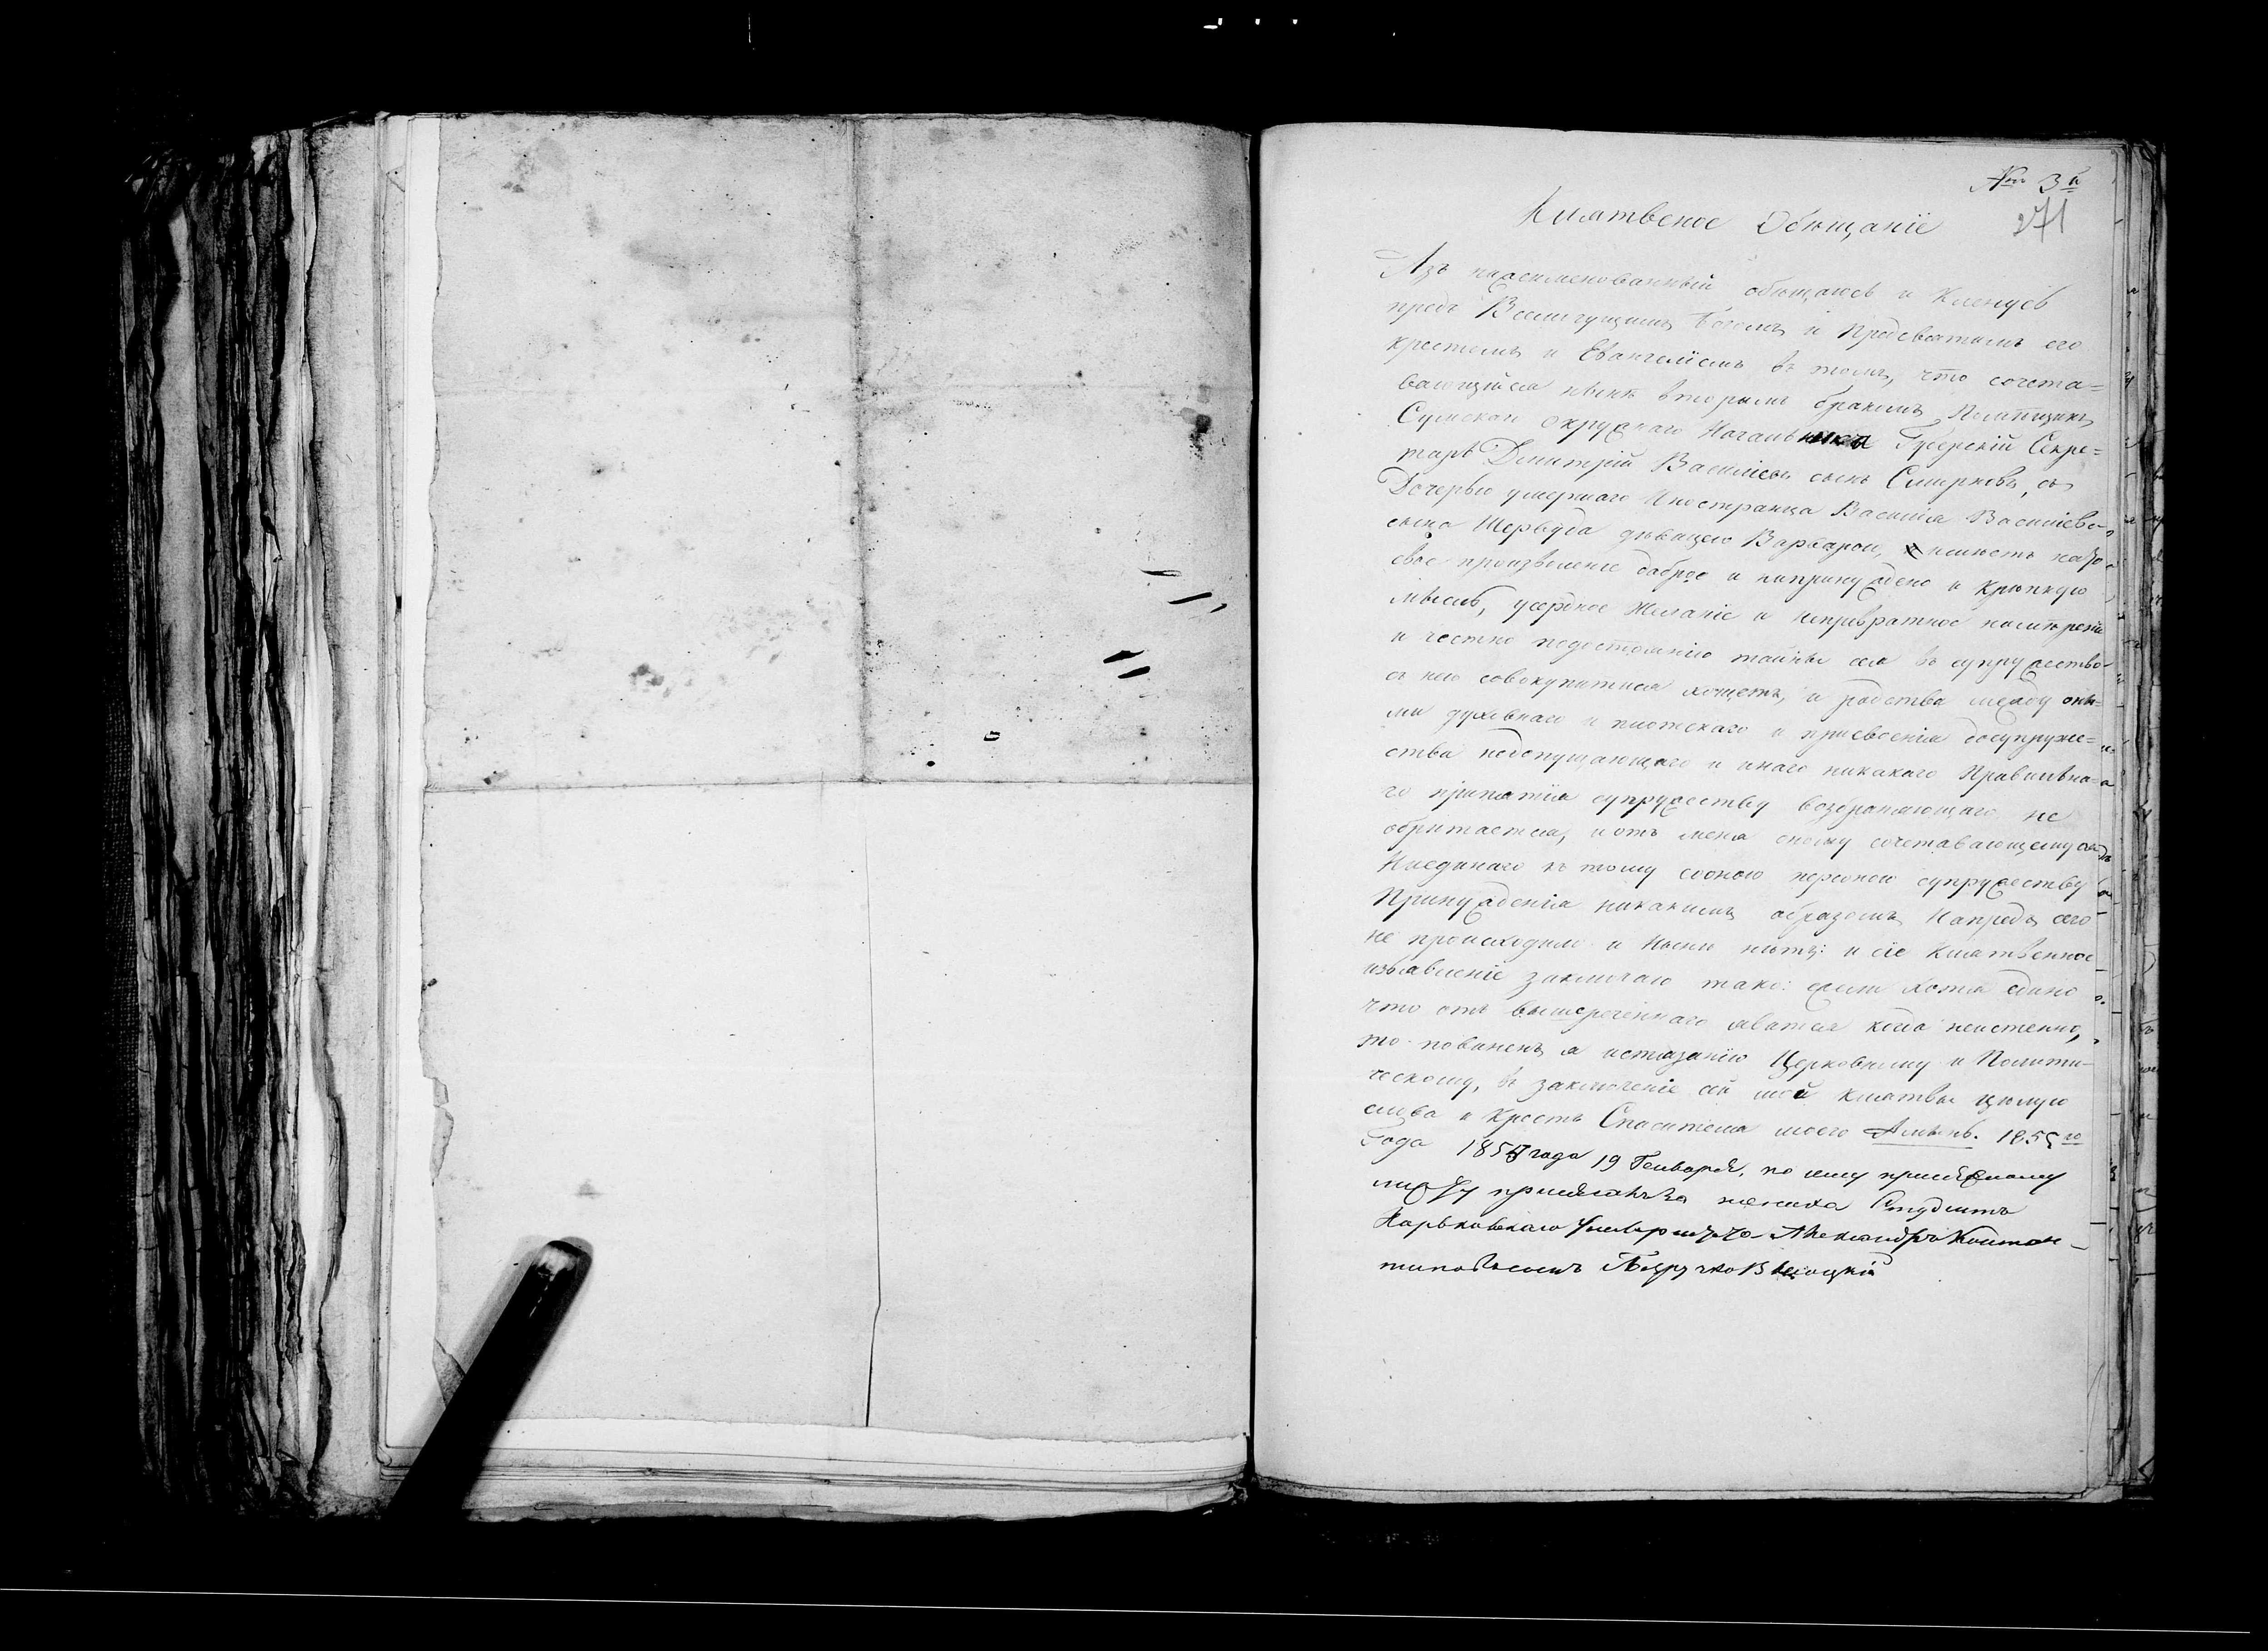 № 3й
271
Клятвеное Обѣщаніе
Азъ нижеименованный обѣщаюсь и Кленусь
предъ Всемогущимъ Богомъ и Предсвятымъ его
крестомъ и Евангеліемъ въ томъ, что сочета=
вающійся нынѣ вторымъ бракомъ Помѣщикъ
Сумскаи окружнаго Начальника Губерскій Секре=
тарь Дмитрій Василіевъ сынъ Смирновъ, съ
Дочерью умершаго Иностранца Василія Василіева
сына Шервуда дѣвицею Варварою, имѣетъ на то
свое произволеніе доброе и непринуждено и крѣпкую
мысль, усердное Желаніе и непривратное намѣреніе
и честно подостоянію тайны сея въ супружество
съ нею совокупитися хощетъ, и родства между они=
ми духовнаго и плотскаго и присвоенія досупруже=
ства недопущающаго и инаго никакаго Правильна=
го припятія супружеству возбраняющаго не
обрѣтается, и отъ меня оному сочетавающемуся
Ниединаго къ тому соною персоною супружеству
Принужденія никакимъ образомъ Напредъ сего
не происходило и Нынѣ нѣтъ: и сіе Клятвенное
изъявленіе заключаю тако: ежели хотя едино
что отъ вышереченнаго явится когда неистенно,
то повиненъ я истязанію Церковному и Полити-
ческому, въ заключеніе сей моей клятвы цѣлую
слова и Крестъ Спасителя моего Аминь. 1855го
Года 1855 года 19 Генваря, по сему присяжному
листу присягалъ за жениха Студентъ
Харьковскаго Университета Александръ Констан-
тиновъ сынъ Безручко Высоцкій